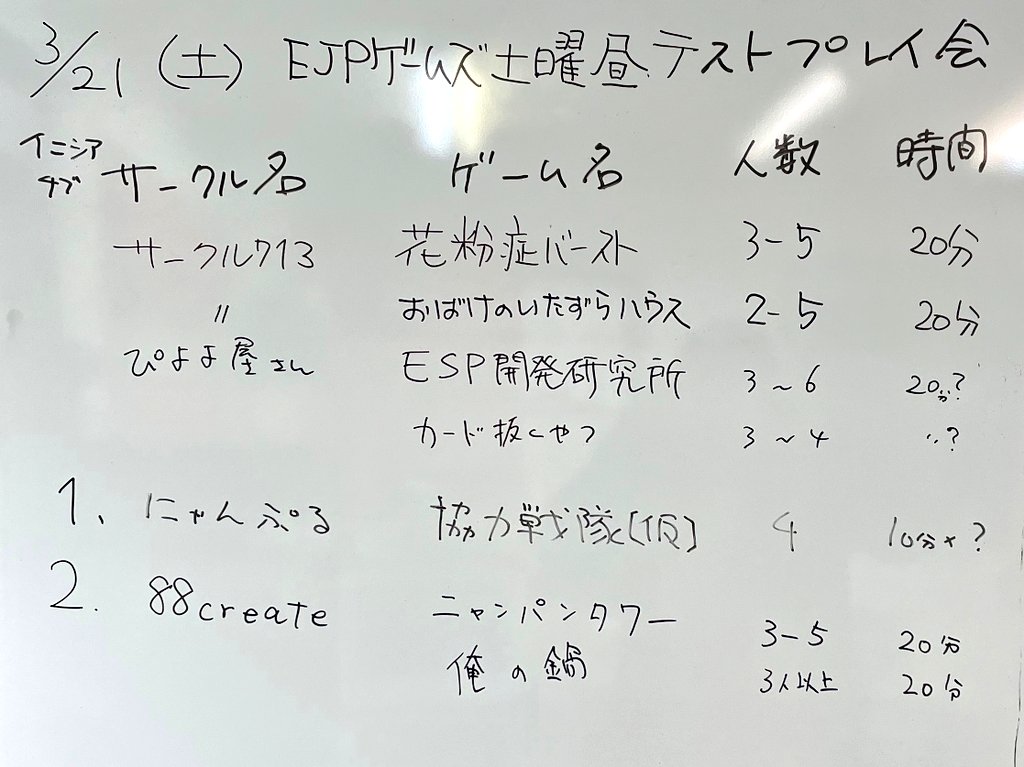 3/21 (土) EJPゲームズ土曜昼テストプレイ会
イニシアチブ サークル名 ゲーム名 人数 時間
サークル713 花粉症バースト 3-5 20分
〃 おばけのいたずらハウス 2-5 20分
ぴよよ屋さん ESP開発研究所 3~6 20分?
カード抜くやつ 3~4 〃?
1. にゃんぷる 協力戦隊(仮) 4 10分×?
2. 88create ニャンパンタワー 3-5 20分
俺の鍋 3人以上 20分